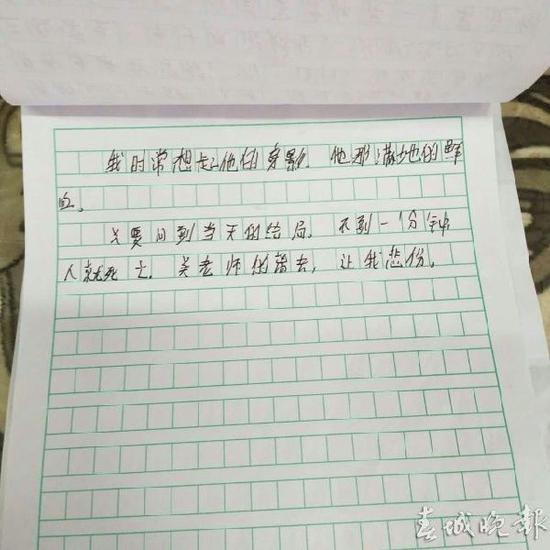 我时常想起他的身影，他那满地的鲜
血。
只要回到当天的结局，不到一分钟
人就死亡，吴老师的离去，让我悲伤。
春城晚报